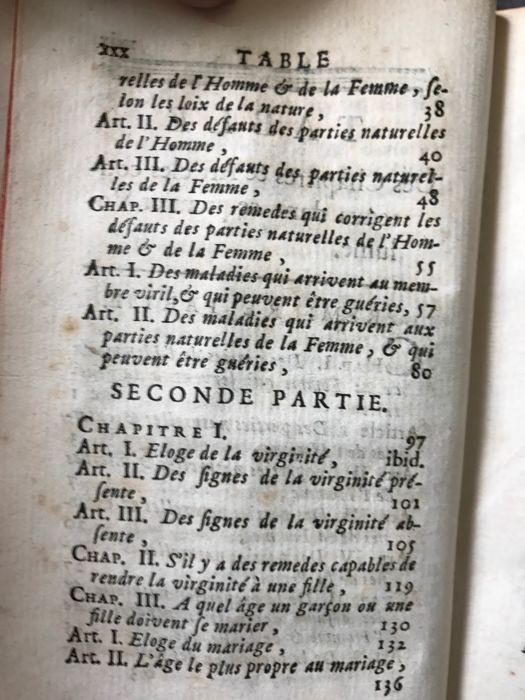 xxx TABLE
relles de l'Homme & de la Femme, ſe-
lon les loix de la nature, 38
Art. II. Des défauts des parties naturelles
de l'Homme, 40
Art. III. Des défauts des parties naturel-
les de la Femme, 48
CHAP. III. Des remedes qui corrigent les
défauts des parties naturelles de l'Hom-
me & de la Femme, 55
Art. I. Des maladies qui arrivent au mem-
bre viril, & qui peuvent être guéries, 57
Art. II. Des maladies qui arrivent aux
parties naturelles de la Femme, & qui
peuvent être guéries, 80
SECONDE PARTIE.
CHAPITRE I. 97
Art. I. Eloge de la virginité, ibid.
Art. II. Des ſignes de la virginité pré-
ſente, 101
Art. III. Des ſignes de la virginité ab-
ſente, 105
CHAP. II. S'il y a des remedes capables de
rendre la virginité à une fille, 119
CHAP. III. A quel âge un garçon ou une
fille doivent ſe marier, 130
Art. I. Eloge du mariage, 132
Art. II. L'âge le plus propre au mariage,
136